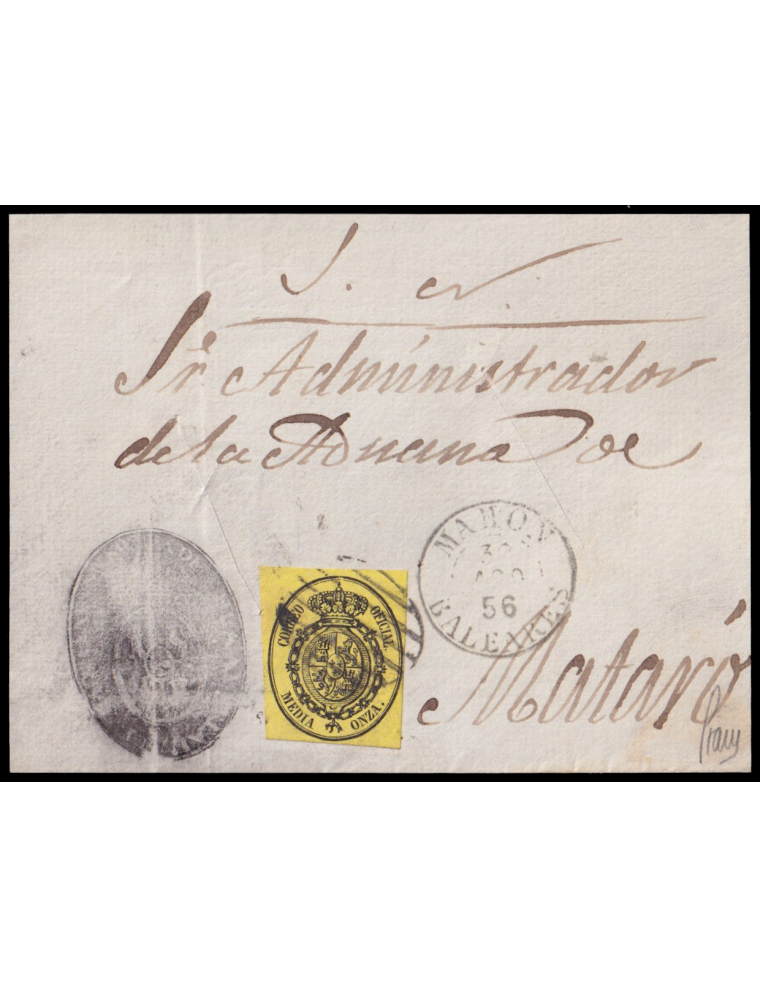 S. N.
Sr. Administrador
de la Aduana de
Mataró
MAHON
30
AGO
56
BALEARES
CORREO OFICIAL
MEDIA ONZA.